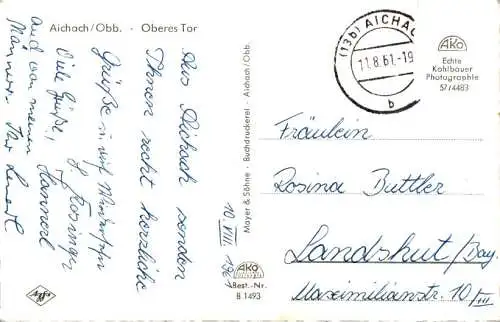 Aichach/Obb. - Oberes Tor
Aus Aichach senden
Ihnen recht herzliche
Grüße u. auf Wiedersehn
H. Rosinger
Viele Grüße, Hannerl
und von meinen
Männern. Ihr
10. VIII. 196
Mayer & Söhne - Buchdruckerei - Aichach/Obb.
AKO
Best.-Nr.
B 1493
Agfa
(13b) AICHAC
11.8.61.-19
b
AKO
Echte
Kohlbauer
Photographie
57/4483
Fräulein
Rosina Buttler
Landshut/Bay.
Maximilianstr. 10/III